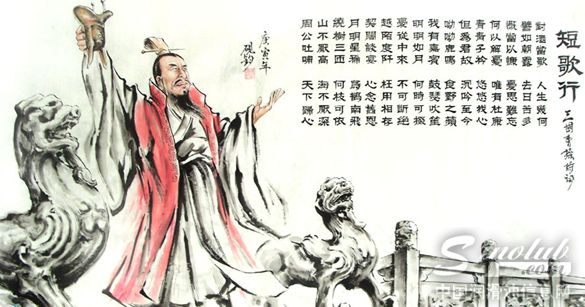 短歌行
三國曹操詩詞
對酒當歌 人生幾何
譬如朝露 去日苦多
慨當以慷 憂思難忘
何以解憂 唯有杜康
青青子衿 悠悠我心
但為君故 沉吟至今
呦呦鹿鳴 食野之蘋
我有嘉賓 鼓瑟吹笙
明明如月 何時可掇
憂從中來 不可斷絕
越陌度阡 枉用相存
契闊談宴 心念舊恩
月明星稀 烏鵲南飛
繞樹三匝 何枝可依
山不厭高 海不厭深
周公吐哺 天下歸心
庚寅年
Sinolub.com
中国润滑油信息网